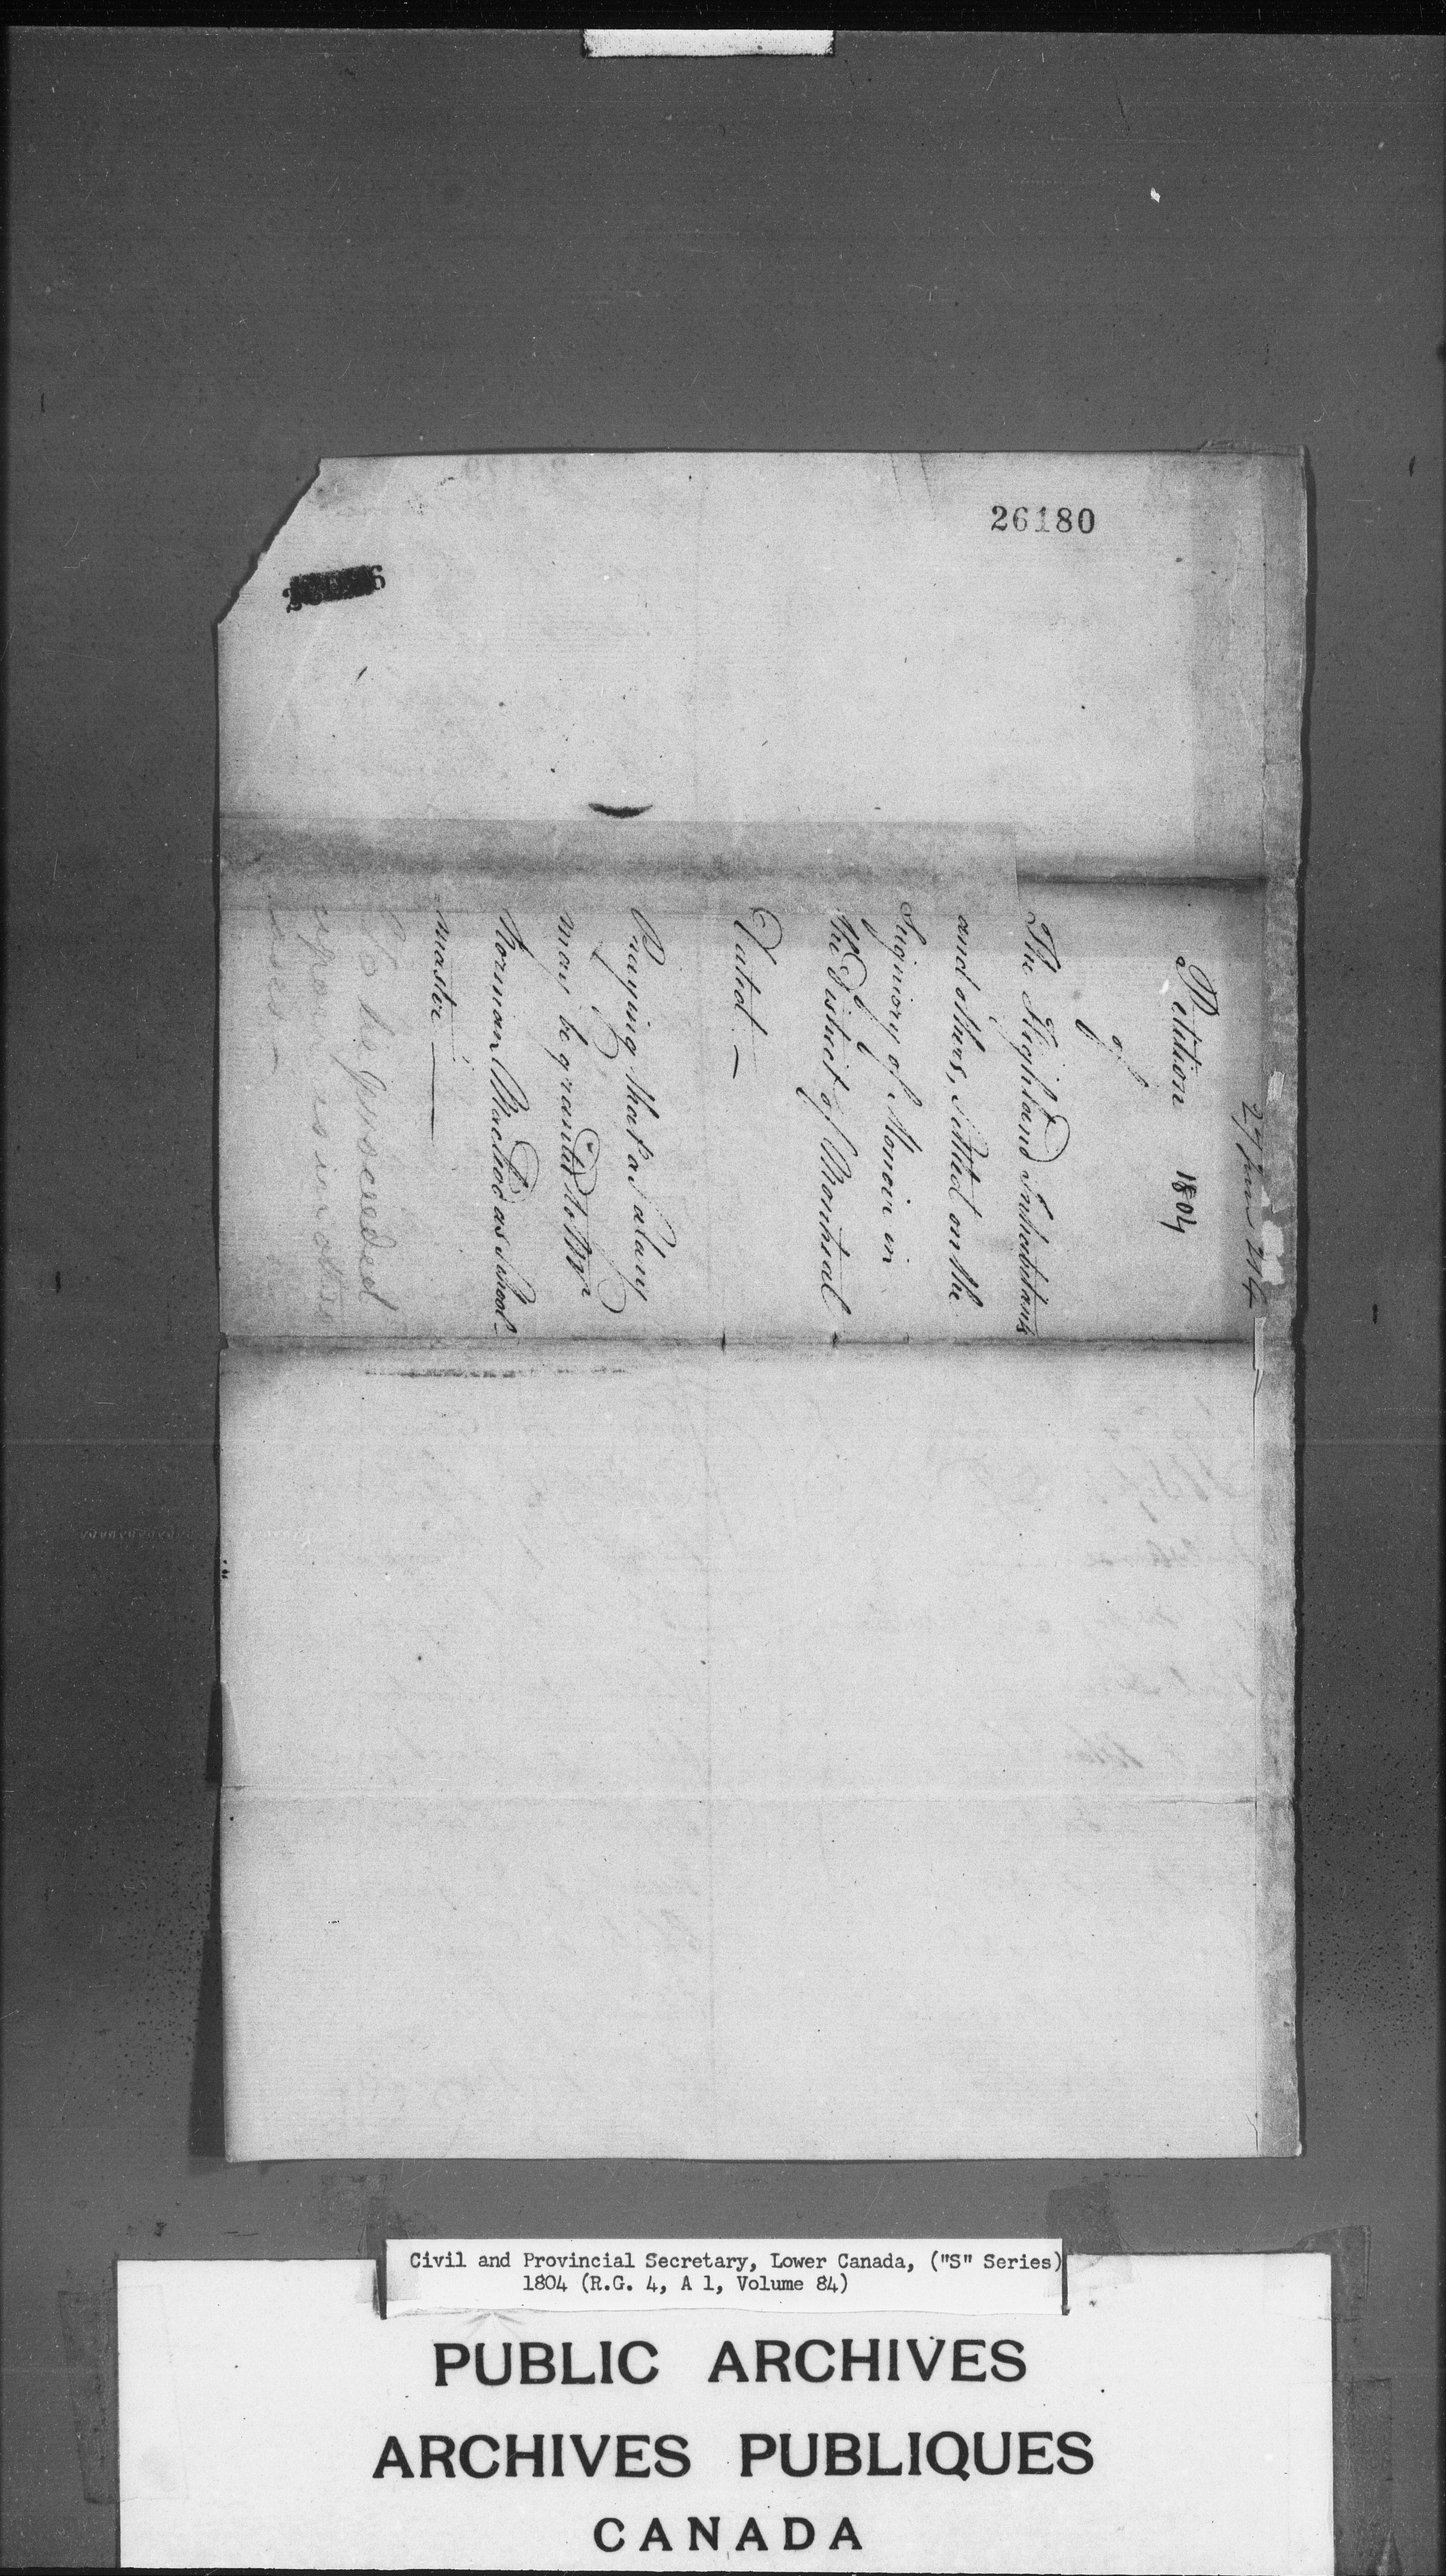 26180
Petition 1804
of
The Highland Inhabitants
and others, Settled on the
Seigniory of Monoir in
the District of Montreal
Dated —
Praying that a Salary
may be granted to Mr
Norman MacLeod as School-
master —
To be proceeded
upon as in other
cases —
Civil and Provincial Secretary, Lower Canada, ("S" Series)
1804 (R.G. 4, A 1, Volume 84)
PUBLIC ARCHIVES
ARCHIVES PUBLIQUES
CANADA